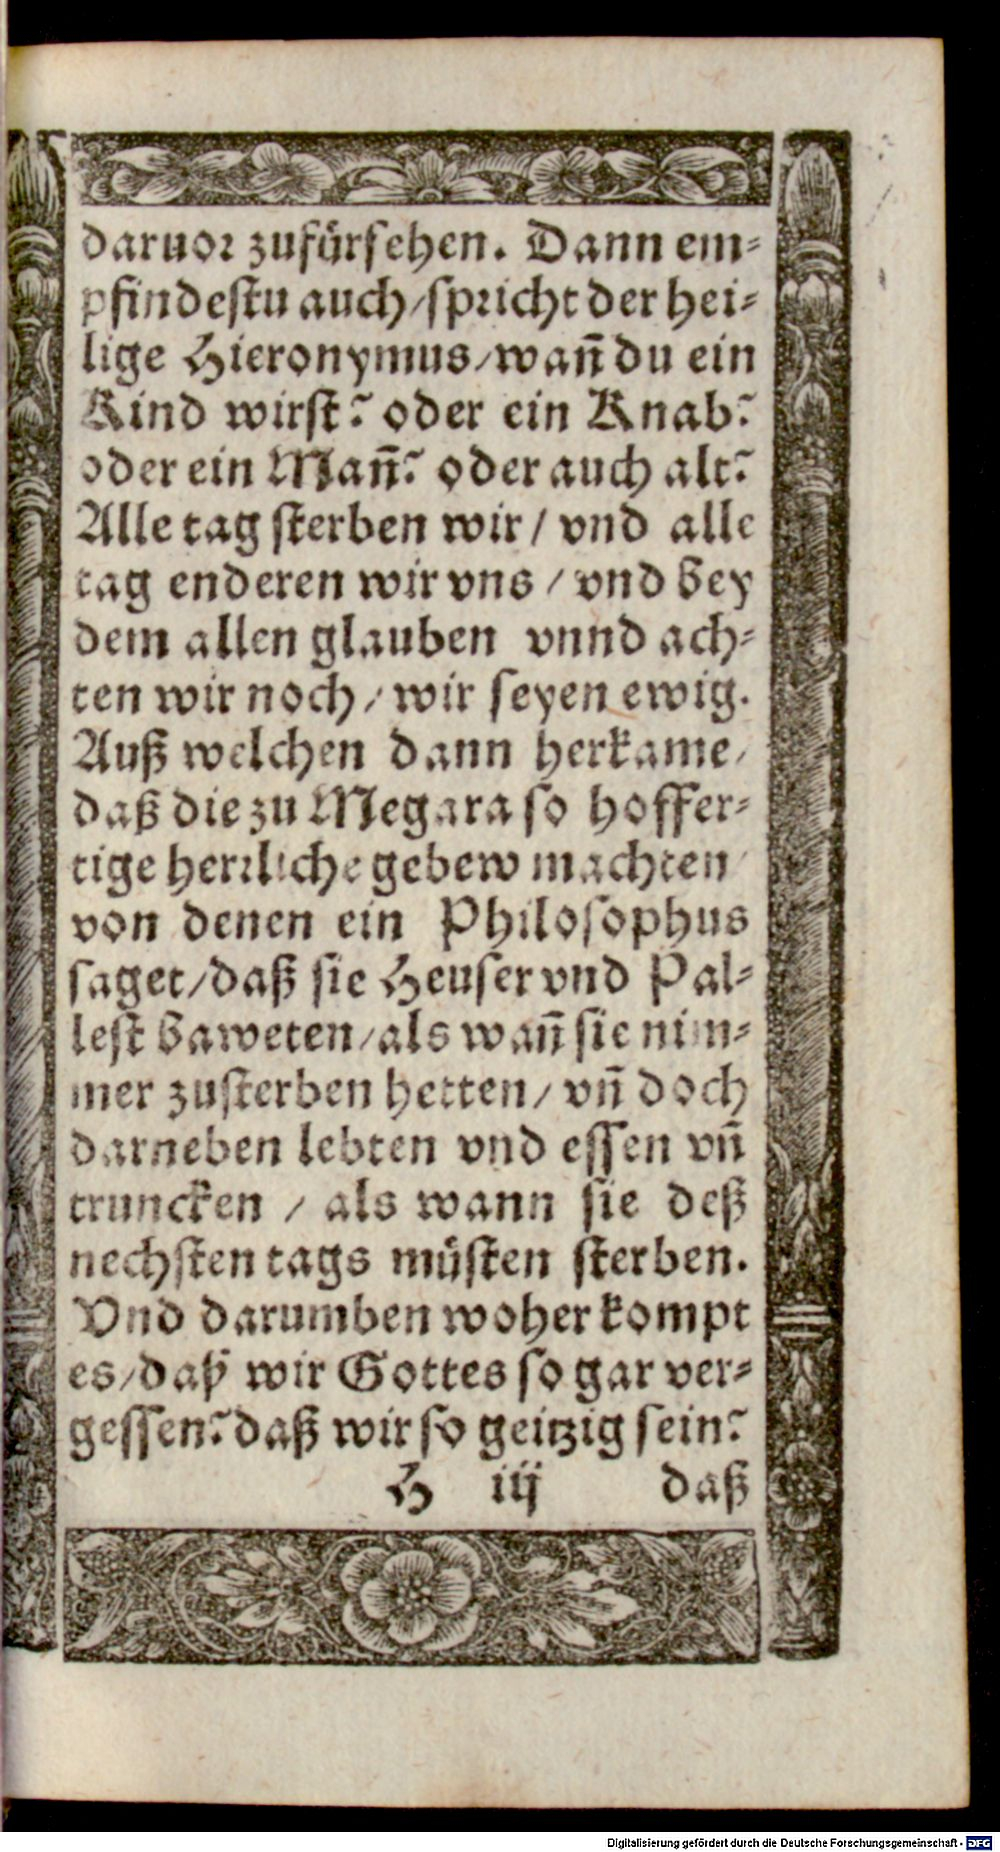 daruor zufürsehen. Dann em-
pfindestu auch/spricht der hei-
lige Hieronymus/wañ du ein
Kind wirst? oder ein Knab?
oder ein Mañ? oder auch alt?
Alle tag sterben wir / vnd alle
tag enderen wir vns / vnd bey
dem allen glauben vnnd ach-
ten wir noch / wir seyen ewig.
Auß welchen dann herkame/
daß die zu Megara so hoffer-
tige herrliche gebew machten/
von denen ein Philosophus
saget/daß sie Heuser vnd Pal-
lest baweten/als wañ sie nim-
mer zusterben hetten/ vñ doch
darneben lebten vnd essen vñ
truncken / als wann sie deß
nechsten tags müsten sterben.
Vnd darumben woher kompt
es/daß wir Gottes so gar ver-
gessen? daß wir so geitzig sein?
H iij daß
Digitalisierung gefördert durch die Deutsche Forschungsgemeinschaft - DFG